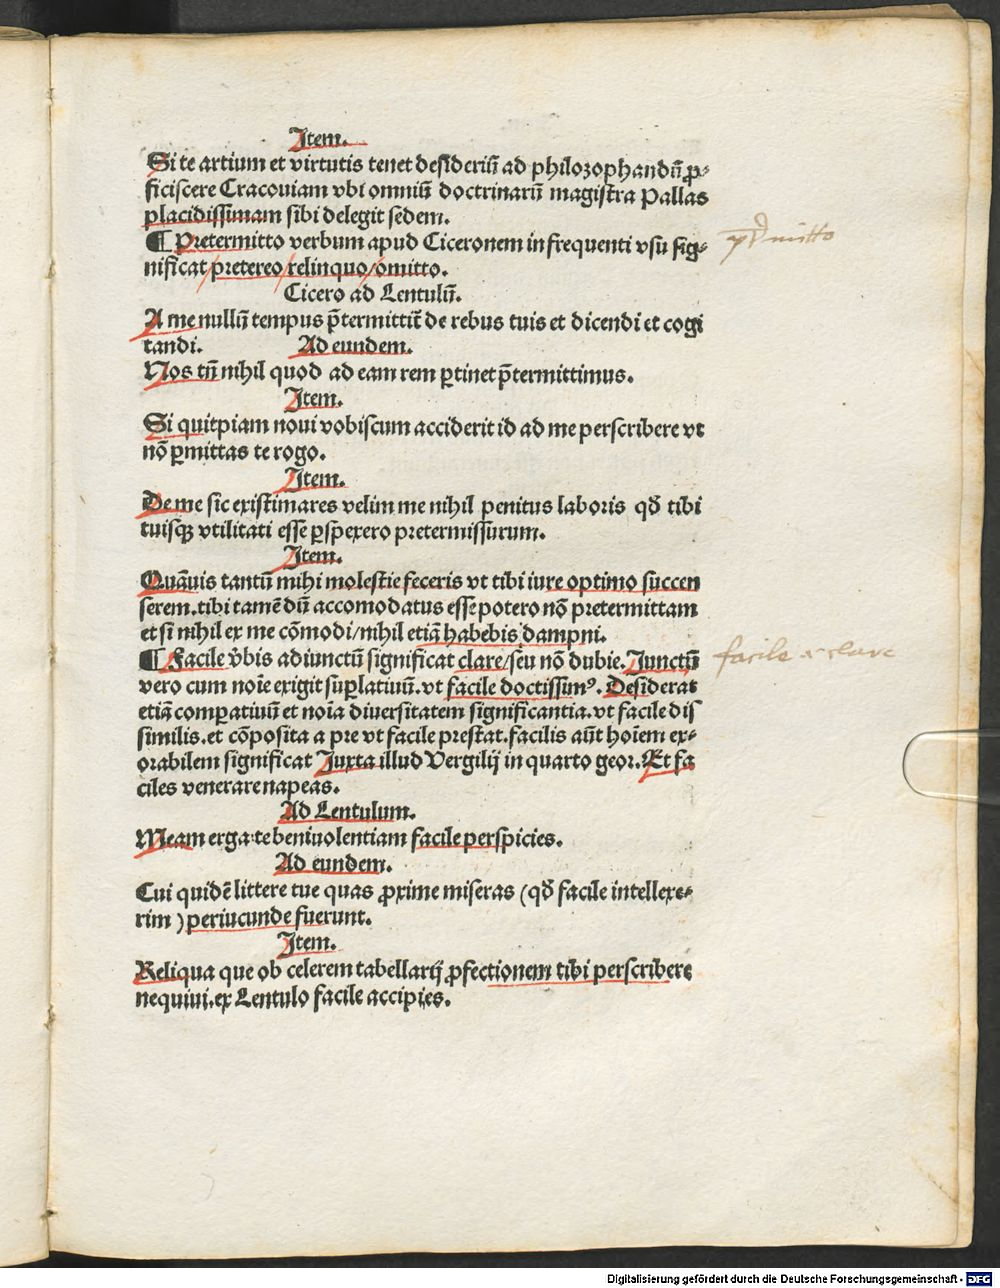 Item.
Si te artium et virtutis tenet desideriū ad philozophandū ꝓ-
ficiscere Cracouiam vbi omniū doctrinarū magistra Pallas
placidissimam sibi delegit sedem.
¶ Pretermitto verbum apud Ciceronem in frequenti vsu sig-
nificat/pretereo/relinquo/omitto.
Cicero ad Lentulū.
A me nullū tempus p̄termittit̄ de rebus tuis et dicendi et cogi
tandi. Ad eundem.
Nos tn̄ nihil quod ad eam rem ꝑtinet p̄termittimus.
Item.
Si quitpiam noui vobiscum acciderit id ad me perscribere vt
nō ꝑmittas te rogo.
Item.
De me sic existimares velim me nihil penitus laboris qd̄ tibi
tuisqꝫ vtilitati esse ꝑspexero pretermissurum.
Item.
Quāuis tantū mihi molestie feceris vt tibi iure optimo succen
serem.tibi tamē dū accomodatus esse potero nō pretermittam
et si nihil ex me cōmodi/nihil etiā habebis dampni.
¶ Facile v̄bis adiunctū significat clare/seu nō dubie.Junctū
vero cum noīe exigit suꝑlatiuū.vt facile doctissimꝰ. Desiderat
etiā comꝑatiuū et noīa diuersitatem significantia.vt facile dis
similis.et cōposita a pre vt facile prestat.facilis aūt hoīem ex-
orabilem significat Juxta illud Vergilij in quarto geor.Et fa
ciles venerare napeas.
Ad Lentulum.
Meam erga te beniuolentiam facile perspicies.
Ad eundem.
Cui quidē littere tue quas ꝓxime miseras (qd̄ facile intellexe-
rim) periucunde fuerunt.
Item.
Reliqua que ob celerem tabellarij ꝓfectionem tibi perscribere
nequiui.ex Lentulo facile accipies.
facile clare
Digitalisierung gefördert durch die Deutsche Forschungsgemeinschaft - DFG